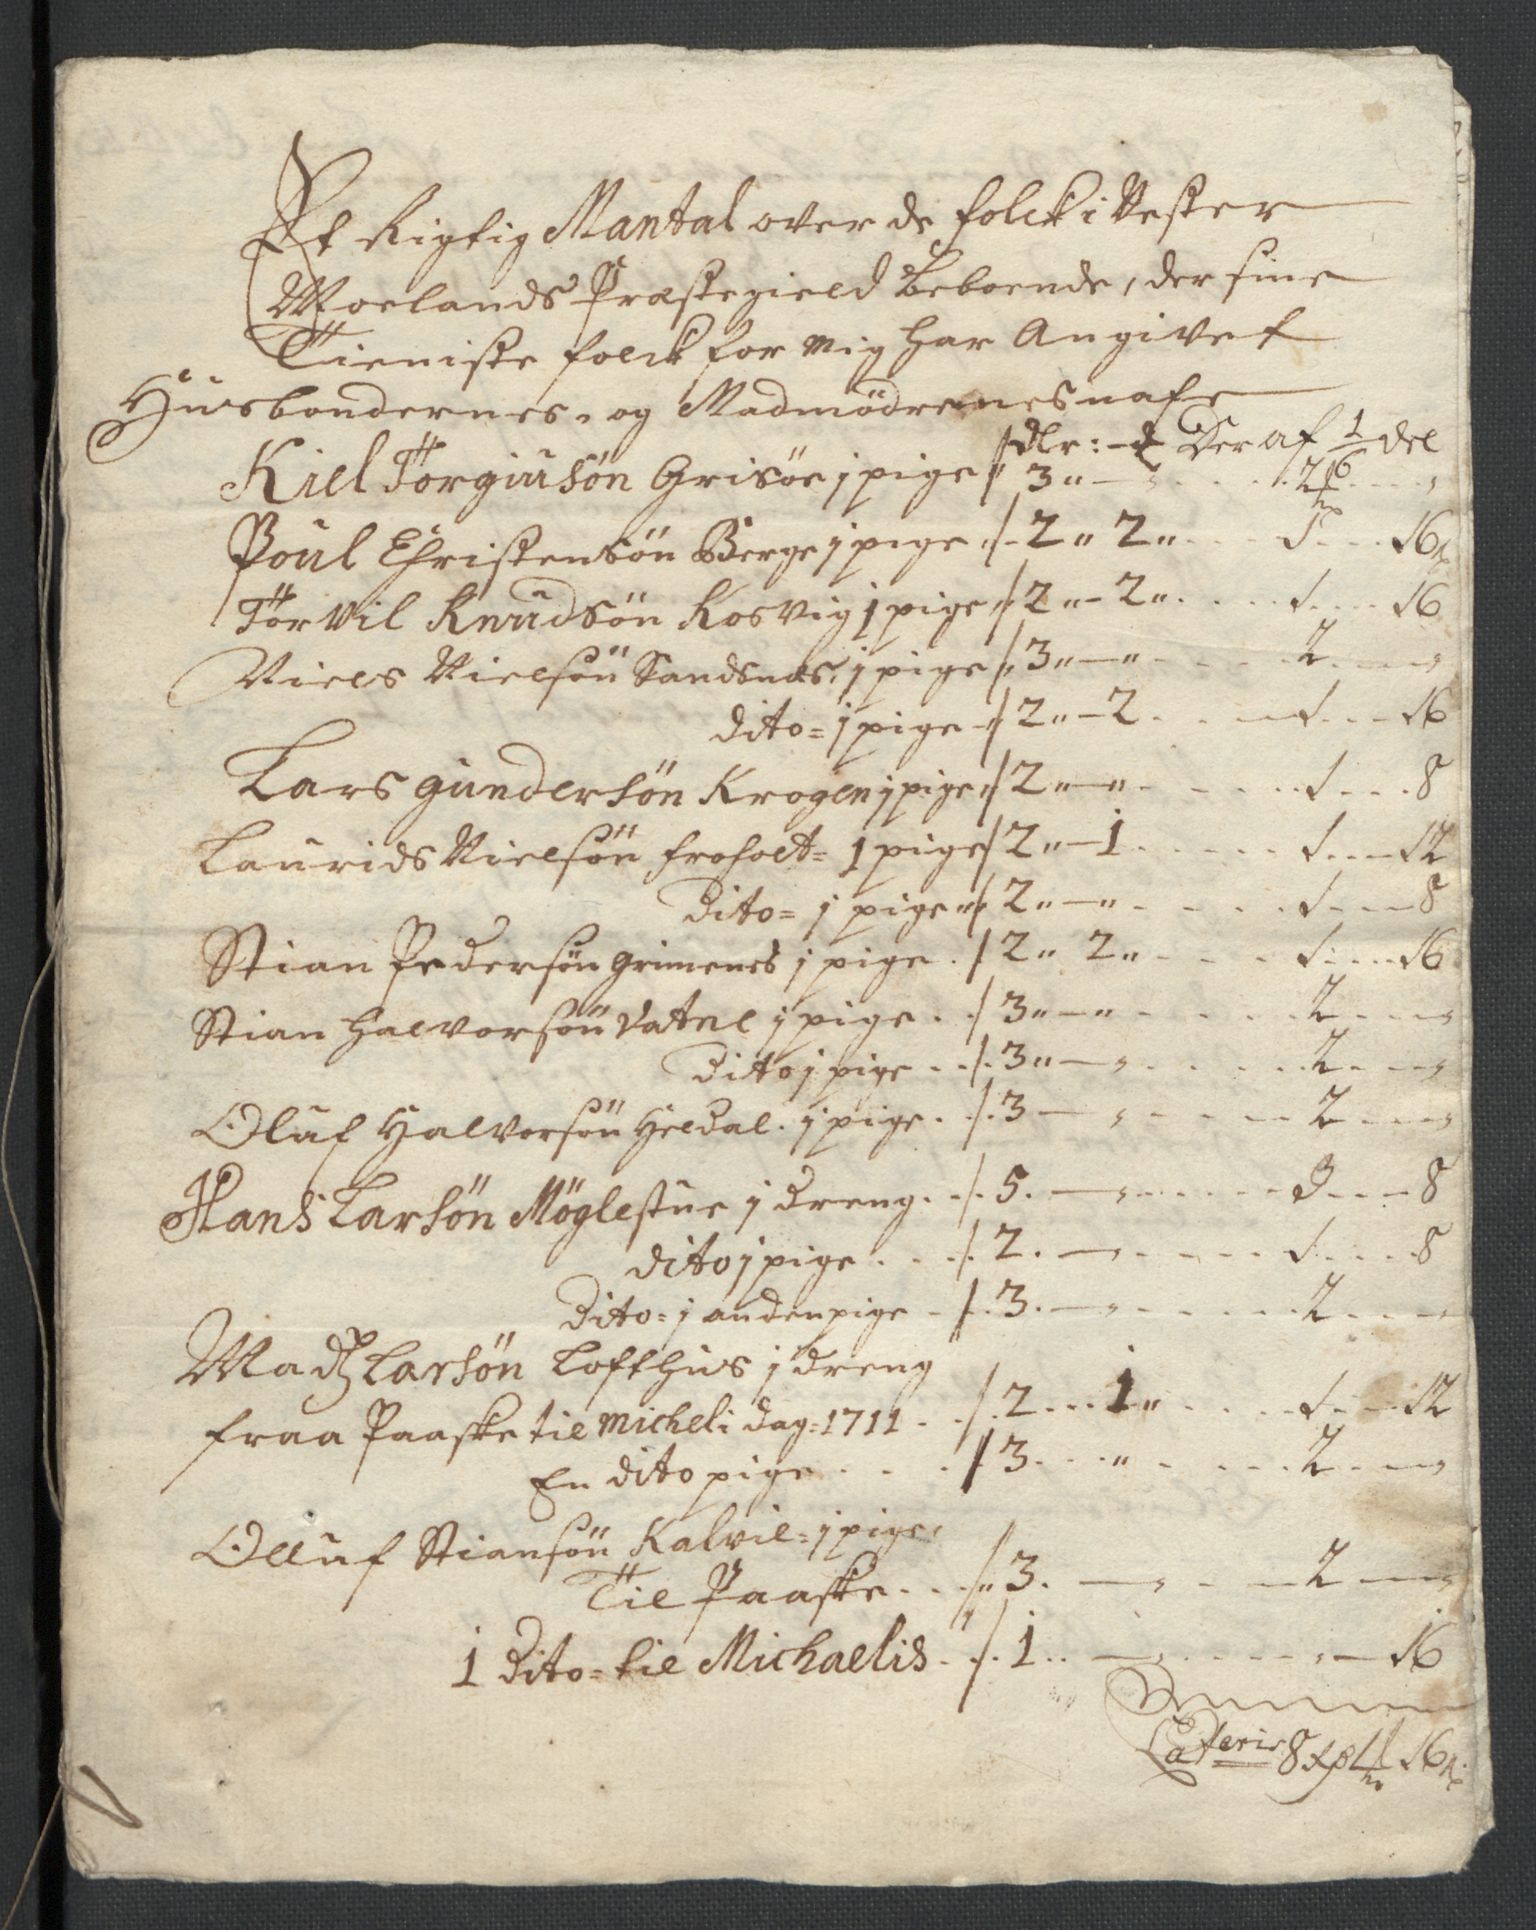 Et Rigtig Mantal over de folck i Vester
Moelands Præstegield Beboende, der sine
Tieniste folck for mig har Angivet
Husbondernes og Madmödrenes nafe
dlr: Der af 1/6 del
Kiel Torgiusön Grisöe j pige 3 „ — „ 2 „
Poul Christensön Berge j pige 2 „ 2 „ 1 16
Torvil Knudsön Kosvig j pige 2 „ 2 „ 1 16
Niels Nielsön Sandsnæs j pige 3 „ — „ 2 „
dito = j pige 2 „ 2 1 16
Lars gundersön Krogen j pige 2 „ — „ 1 8
Laurids Nielsön froholt = 1 pige 2 „ 1 1 12
Dito = j pige 2 „ — „ 1 8
Stian Pedersön grimenes j pige 2 „ 2 „ 1 16
Stian Halvorsön Vatne j pige 3 „ — „ 2 „
Dito j pige 3 „ — „ 2 „
Oluf Halvorsön Heldal j pige 3 — „ 2 „
Hans Larsön Möglestue j dreng 5 — „ 3 8
dito j pige 2 — „ 1 8
Dito = j anden pige 3 — „ 2 „
Madz Larsön Lofthus j dreng
fraa Paaske til Micheli dag = 1711 2 1 „ 1 12
En dito pige 3 „ 2 „
Olluf Stiansön Kalvil = j pige
Til Paaske 3 — „ 2 „
1 Dito = til Michaelis 1 — „ „ 16
Lateris 8 16